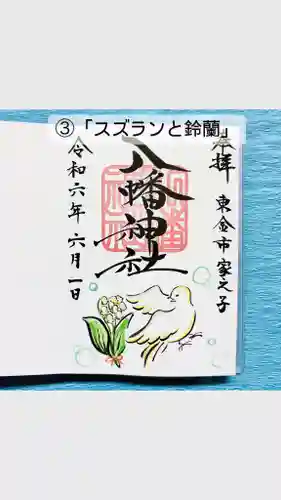 ③「スズランと鈴蘭」
奉拝
東金市家之子
八幡神社
令和六年六月一日